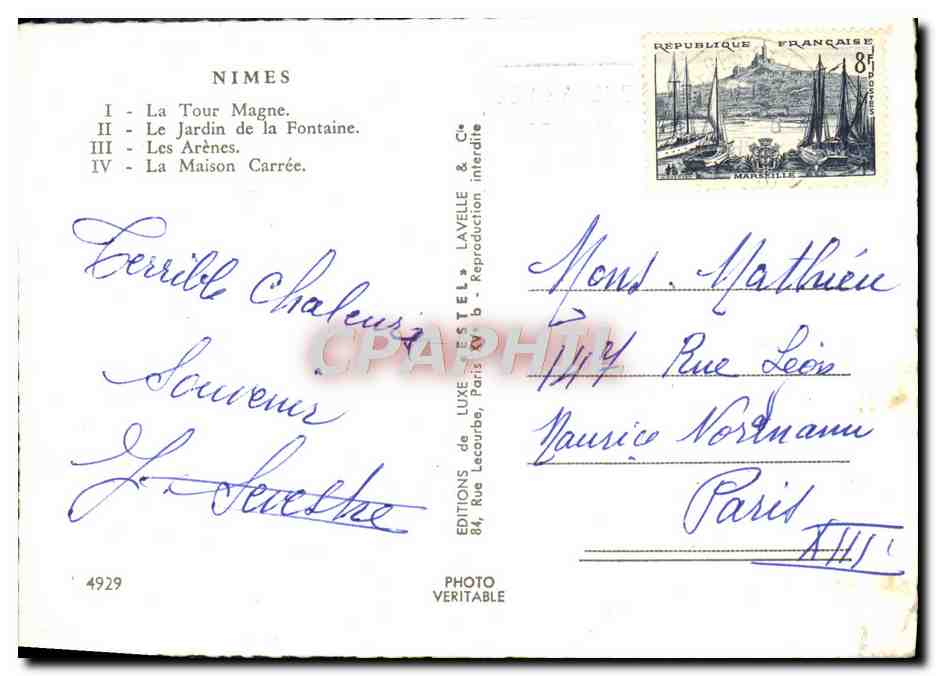 NIMES
I - La Tour Magne.
II - Le Jardin de la Fontaine.
III - Les Arènes.
IV - La Maison Carrée.
Terrible chaleurs
Souvenir
4929
EDITIONS de LUXE « ESTEL » LAVELLE & Cie
84, Rue Lecourbe, Paris XVe b - Reproduction interdite
PHOTO
VERITABLE
CPAPHIL
REPUBLIQUE FRANÇAISE
8F
POSTES
MARSEILLE
Mons. Mathieu
147 Rue Léon
Maurice Nordmann
Paris
XIII